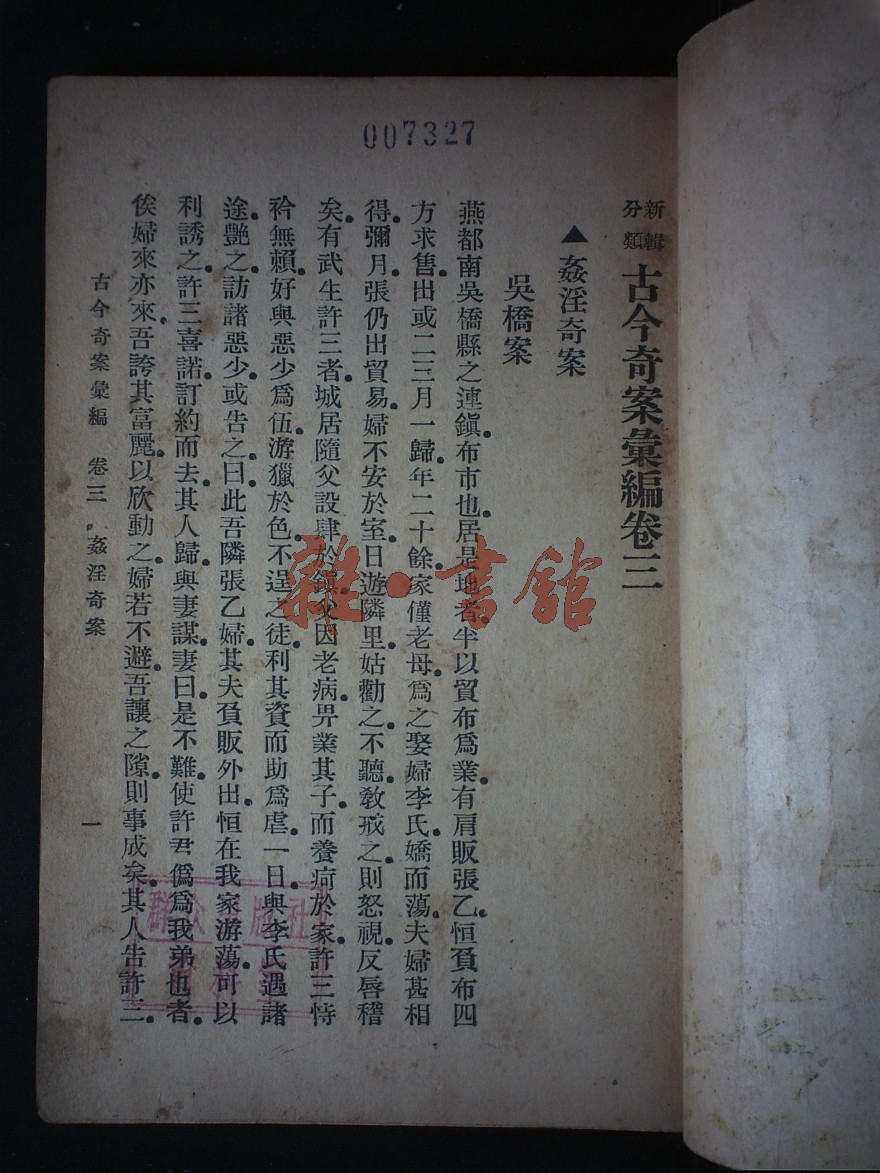 007327
新輯分類 古今奇案彙編卷三
▲姦淫奇案
吳橋案
燕都南吳橋縣之連鎮。布市也。居是地者。半以貿布爲業。有肩販張乙。恒負布四
方求售。出或二三月一歸。年二十餘。家僅老母。爲之娶婦李氏。嬌而蕩。夫婦甚相
得。彌月。張仍出貿易。婦不安於室。日遊隣里。姑勸之。不聽。教戒之。則怒視。反唇稽
矣。有武生許三者。城居隨父設肆於鎮。父因老病。畀業其子。而養疴於家。許三恃
衿無賴。好與惡少爲伍。游獵於色。不逞之徒。利其資而助爲虐。一日。與李氏遇諸
途。艷之。訪諸惡少。或告之曰。此吾隣張乙婦。其夫負販外出。恒在我家游蕩。可以
利誘之。許三喜諾。訂約而去。其人歸。與妻謀。妻曰。是不難。使許君僞爲我弟也者。
俟婦來亦來。吾誇其富麗。以欣動之。婦若不避。吾讓之隙。則事成矣。其人告許三。
古今奇案彙編 卷三 姦淫奇案 一
雜·書館
群众出版社